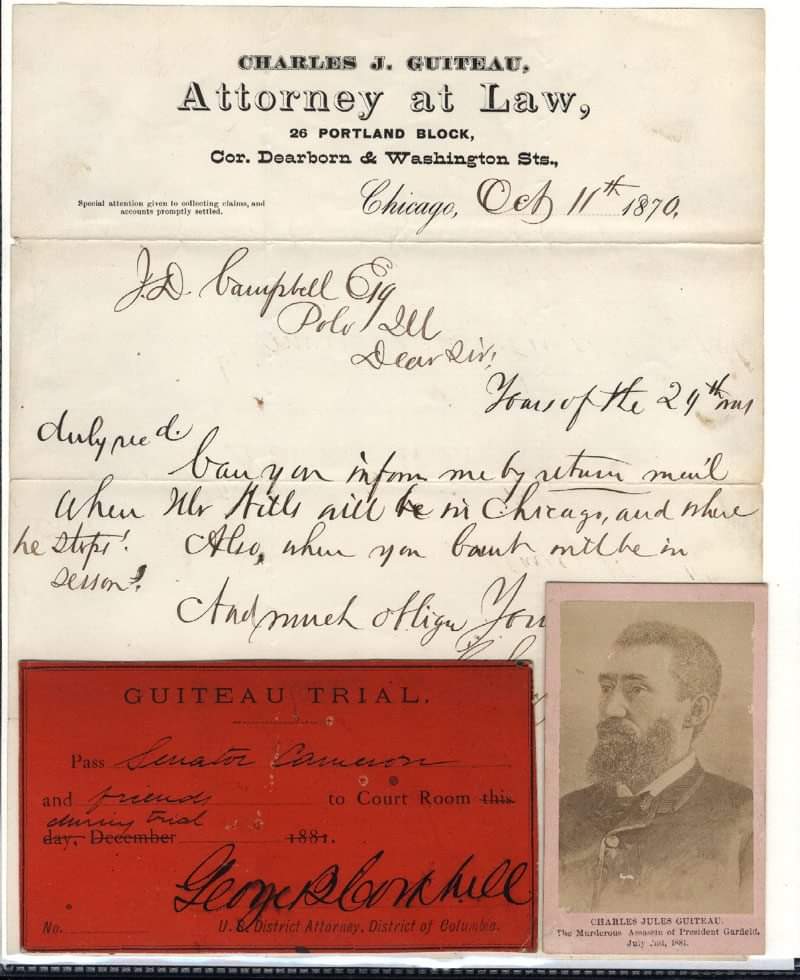 CHARLES J. GUITEAU,
Attorney at Law,
26 PORTLAND BLOCK,
Cor. Dearborn & Washington Sts.,
Special attention given to collecting claims, and
accounts promptly settled.
Chicago, Oct 11th 1870.
J.D. Campbell Esq
Polo Ill
Dear Sir,
Yours of the 29th
duly rec'd.
Can you inform me by return mail
when Mr Hills will be in Chicago, and where
he stops? Also, when you Court will be in
session?
And much oblige You
GUITEAU TRIAL.
Pass Senator Cameron
and friends to Court Room this
during trial
day, December 1881.
George B Corkhill
No. U. S. District Attorney, District of Columbia.
CHARLES JULES GUITEAU.
The Murderous Assassin of President Garfield,
July 2nd, 1881.